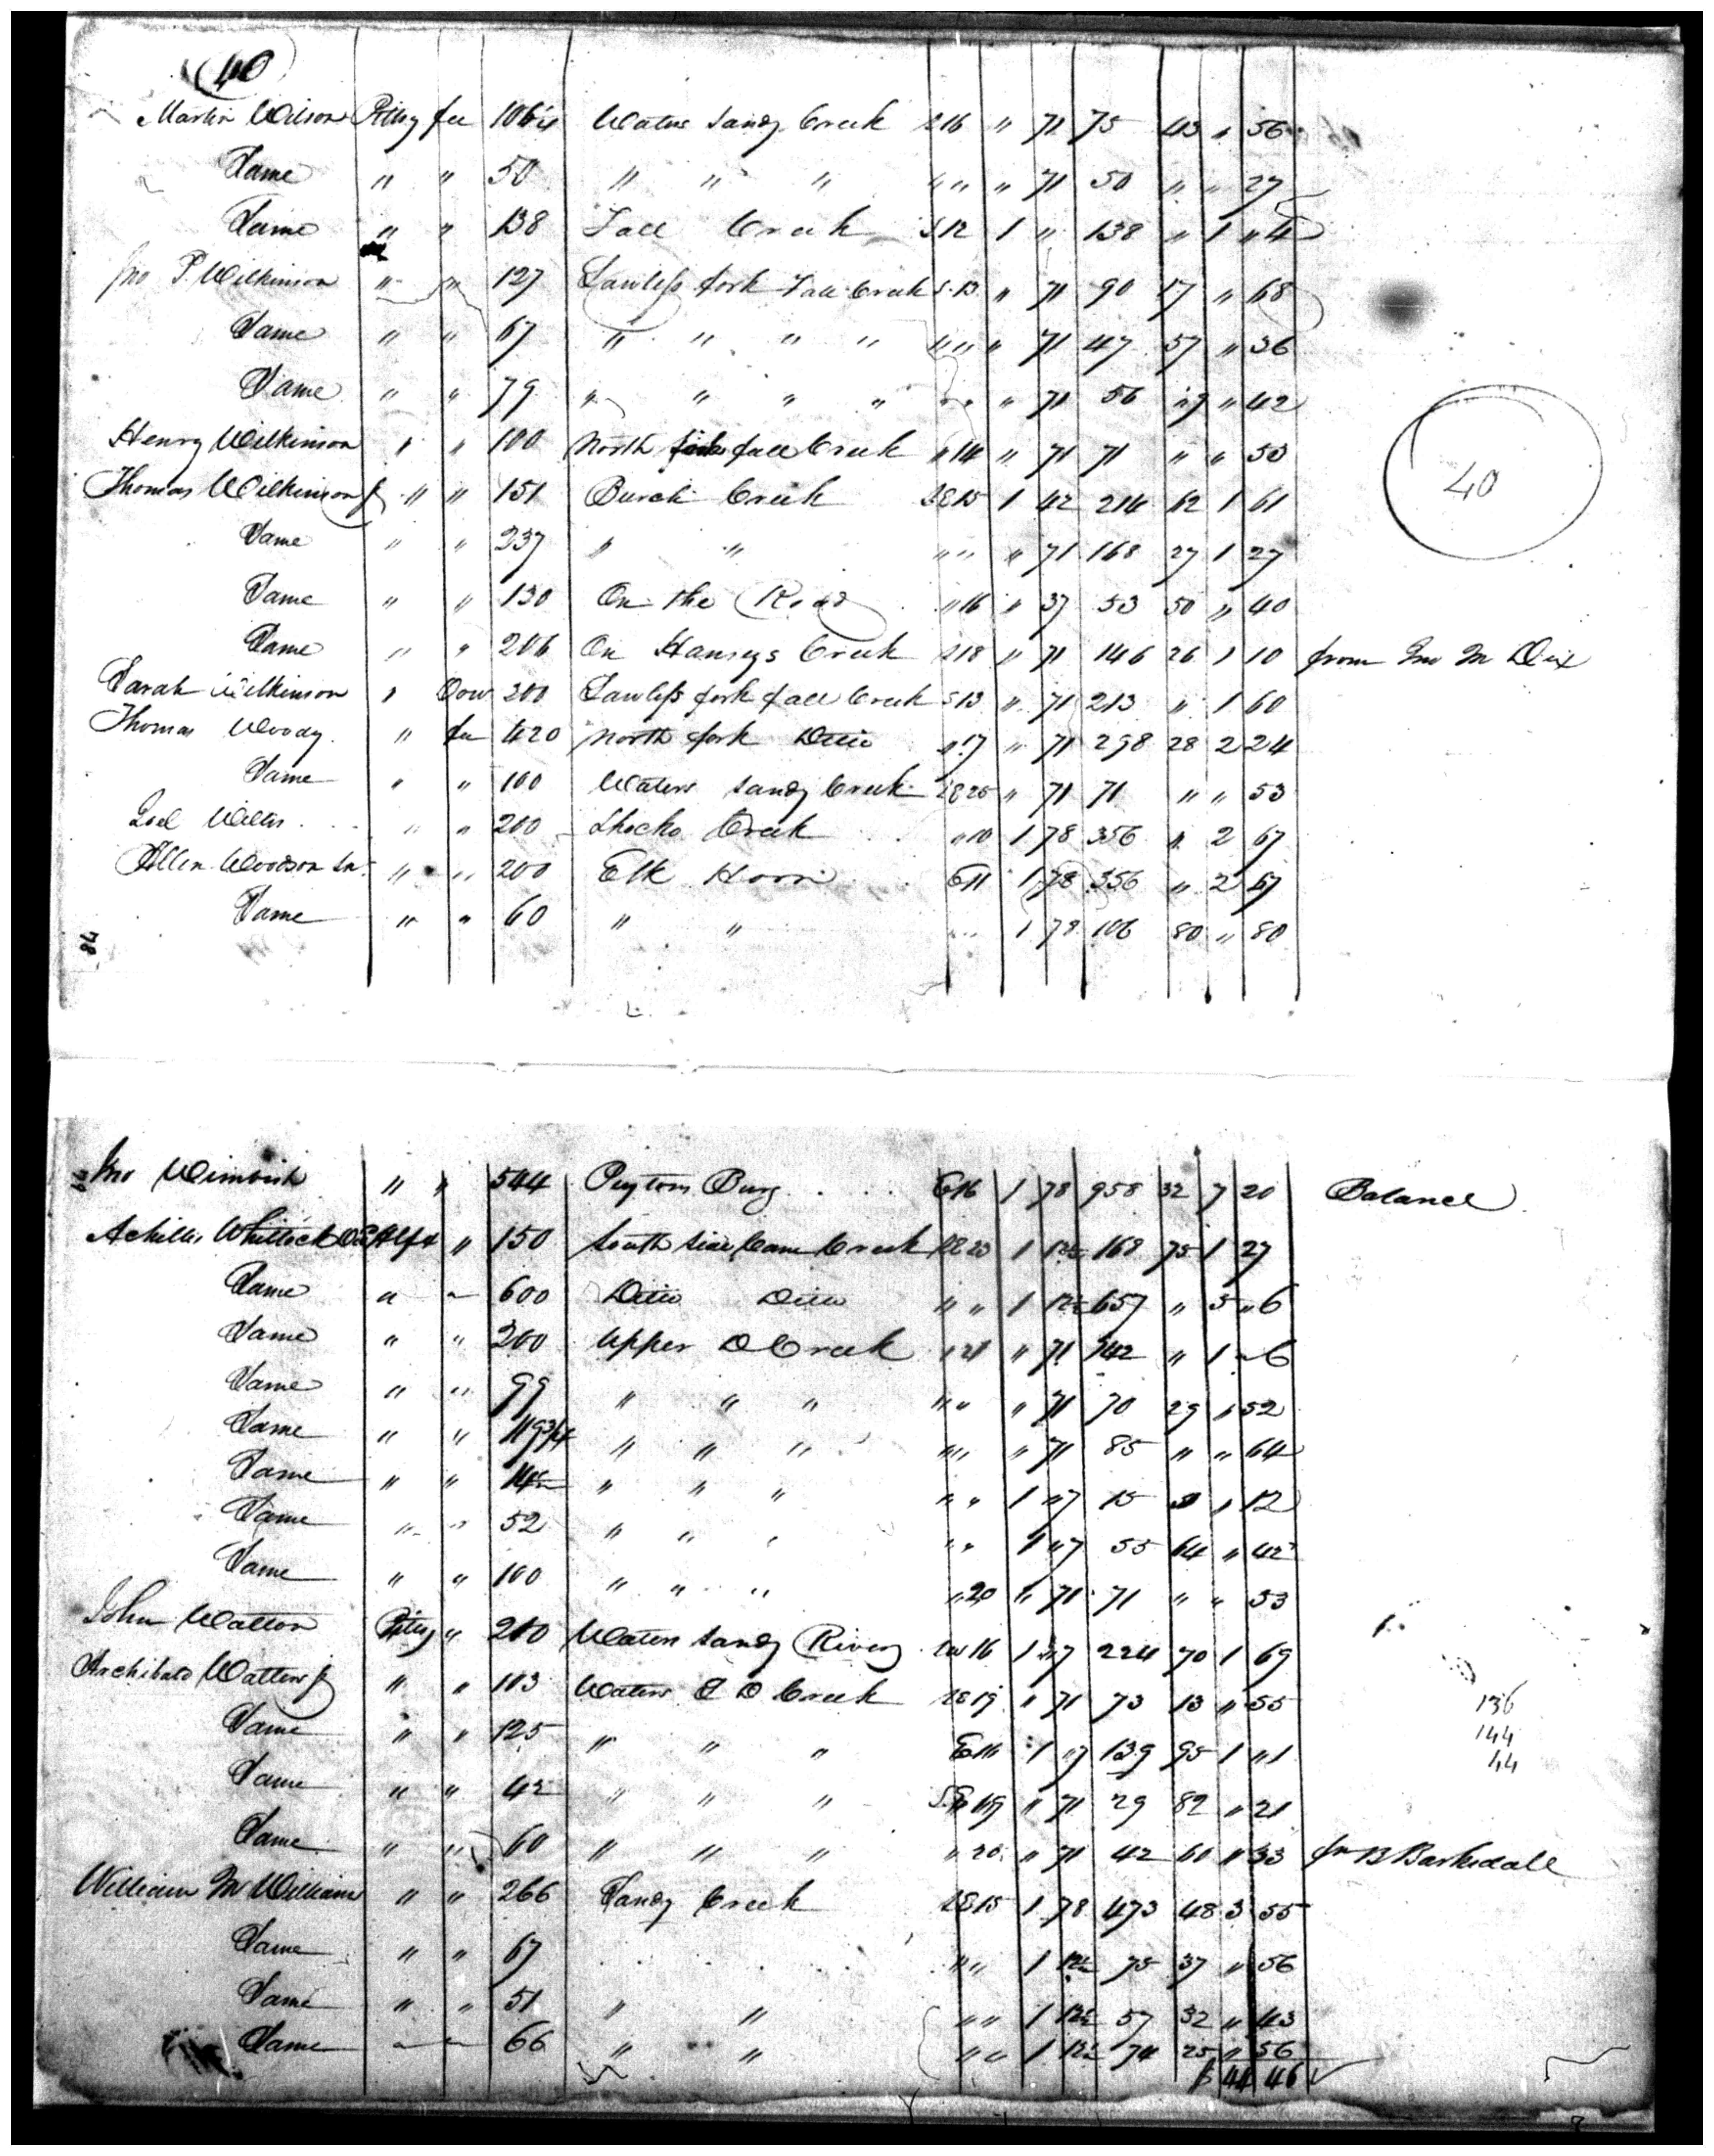 40
Martin Wilson Pittsy fee 106¼ Waters Sandy Creek S 16 " 71 75 43 " 56
Same " " 50 " " " " " " 71 50 " " 27
Same " " 138 Fall Creek S 12 1 " 138 " 1 " 4
Jno P. Wilkinson " " 127 Lawless fork Fall Creek S. 13 " 71 90 17 " 68
Same " " 67 " " " " " " " 71 47 57 " 36
Same " " 79 " " " " " " " 71 56 " 9 " 42
Henry Wilkinson " " 100 North fork fall Creek " 14 " 71 71 " " 53
Thomas Wilkinson Jr " " 151 Burch Creek SE 15 1 42 214 62 1 61
Same " " 237 " " " " " 71 168 27 1 27
Same " " 130 On the Road " 16 " 37 53 50 " 40
Same " " 206 On Hanseys Creek S 18 " 71 146 26 1 10 from Jno M Dix
Sarah Wilkinson " Dow 300 Lawless fork fall Creek S 13 " 71 213 " 1 60
Thomas Woody " fee 420 North fork Ditto " 17 " 71 298 28 2 24
Same " " 100 Waters Sandy Creek SE 20 " 71 71 " " 53
Joel Willis " " 200 Shocko Creek " 10 1 78 356 " 2 67
Allen Woodson Sr " " 200 Elk Horn E 11 1 78 356 " 2 67
Same " " 60 " " " " 1 78 106 80 " 80
40
Jno Wimbish " " 544 Peytons Burg E 16 1 78 958 32 7 20 Balance
Achilles Whitlock DE Hlfx " 150 South side Cane Creek SE 23 1 12½ 168 75 1 27
Same " " 600 Ditto Ditto " " 1 12½ 657 " 5 " 6
Same " " 200 Upper D Creek " 21 " 71 142 " 1 " 6
Same " " 99 " " " " " " 71 70 29 " 52
Same " " 119¾ " " " " " " 71 85 " " 64
Same " " 14½ " " " " " 1 " 7 15 " 12
Same " " 52 " " " " " 1 " 7 55 64 " 42
Same " " 100 " " " " 20 " 71 71 " " 53
John Watton Pittsy " 210 Waters Sandy River SW 16 1 " 7 224 70 1 69
Archibald Watters Jr " " 103 Waters D Creek SE 19 " 71 73 13 " 55
136
Same " " 125 " " " E 16 1 " 7 139 95 1 " 1
144
44
Same " " 42 " " " SE 19 " 71 29 82 " 21
Same " " 60 " " " " 20 " 71 42 60 " 33 fm B Barksdall
William M Williams " " 266 Sandy Creek SE 15 1 78 473 48 3 55
Same " " 67 " " 1 12½ 75 37 " 56
Same " " 51 " " " " 1 12½ 57 32 " 43
Same " " 66 " " " " 1 12½ 74 25 " 56
$ 44 46